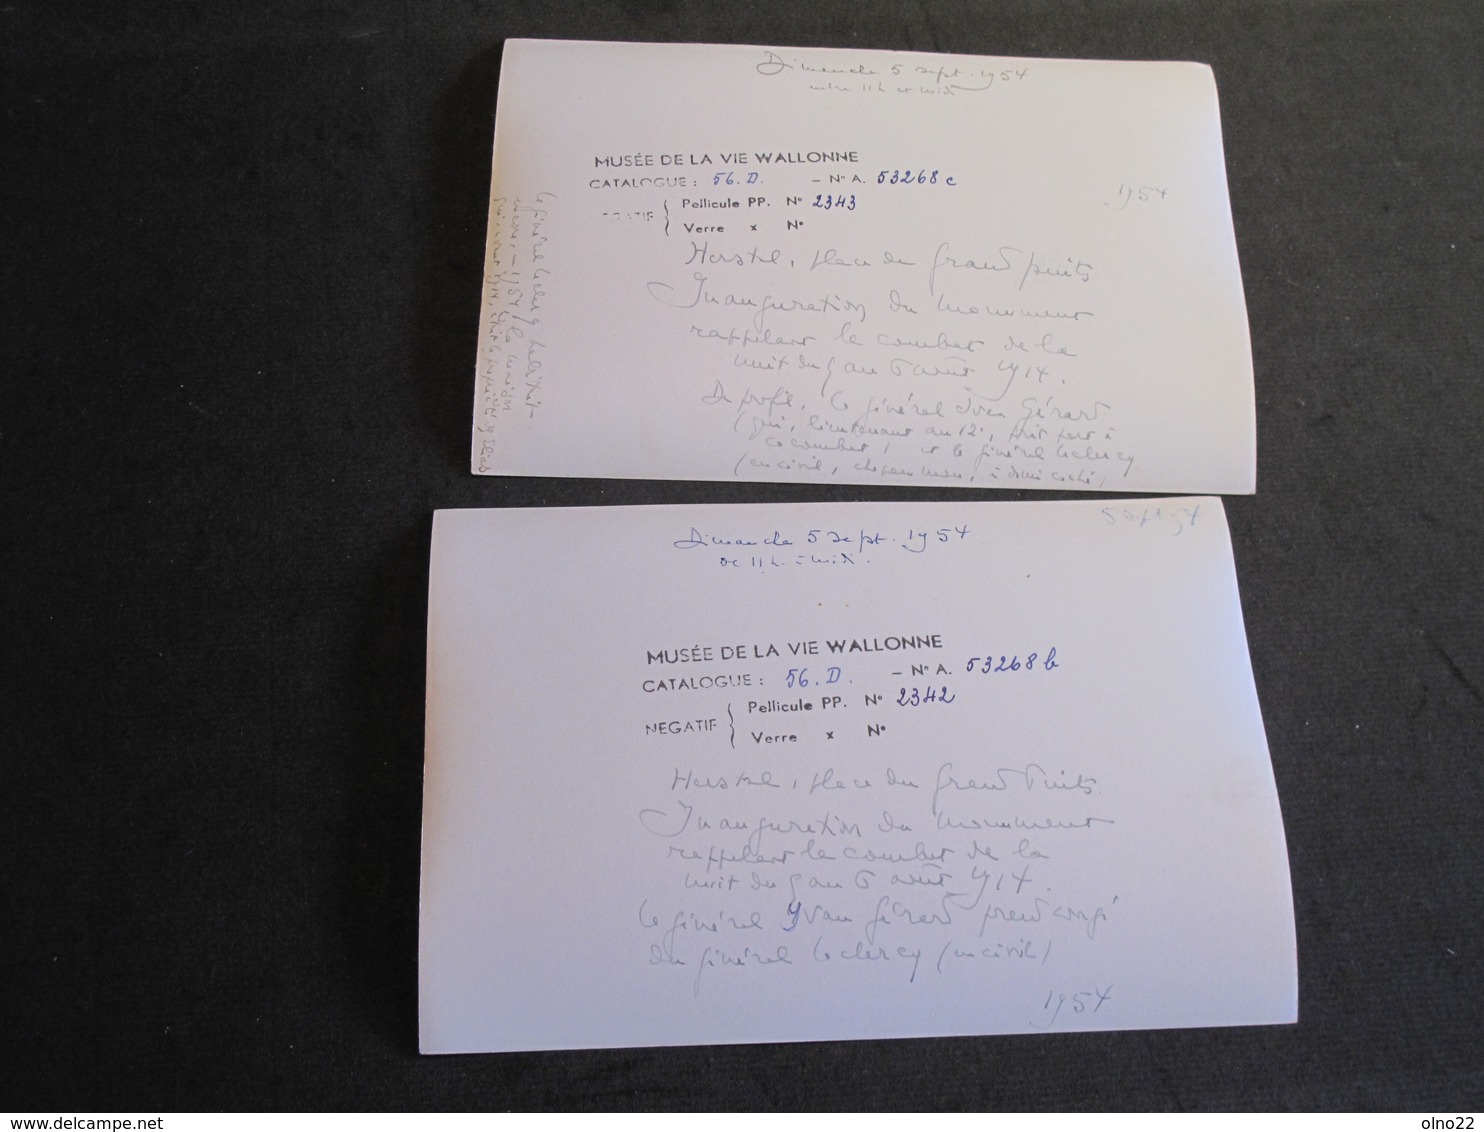 Dimanche 5 sept. 1954
entre 11 h. et midi
MUSÉE DE LA VIE WALLONNE
CATALOGUE : 56. D. – N° A. 53268 c
Pellicule PP. N° 2343
Verre x N°
1954
Herstal, place du Grand puits
Inauguration du monument
rappelant le combat de la
nuit du 5 au 6 août 1914.
De profil, le général Yvan Gérard
(qui, lieutenant au 12e, prit part à
ce combat) et le général Leclercq
(en civil, chapeau mou, à demi caché)
le général Leclercq
Dimanche 5 sept. 1954
de 11 h. à midi.
5 sept 54
MUSÉE DE LA VIE WALLONNE
CATALOGUE : 56. D. – N° A. 53268 b
NEGATIF { Pellicule PP. N° 2342
Verre x N°
Herstal, place du Grand Puits.
Inauguration du monument
rappelant le combat de la
nuit du 5 au 6 août 1914.
le général Yvan Gérard prend congé
du général Leclercq (en civil)
1954
delcampe.net
olno22